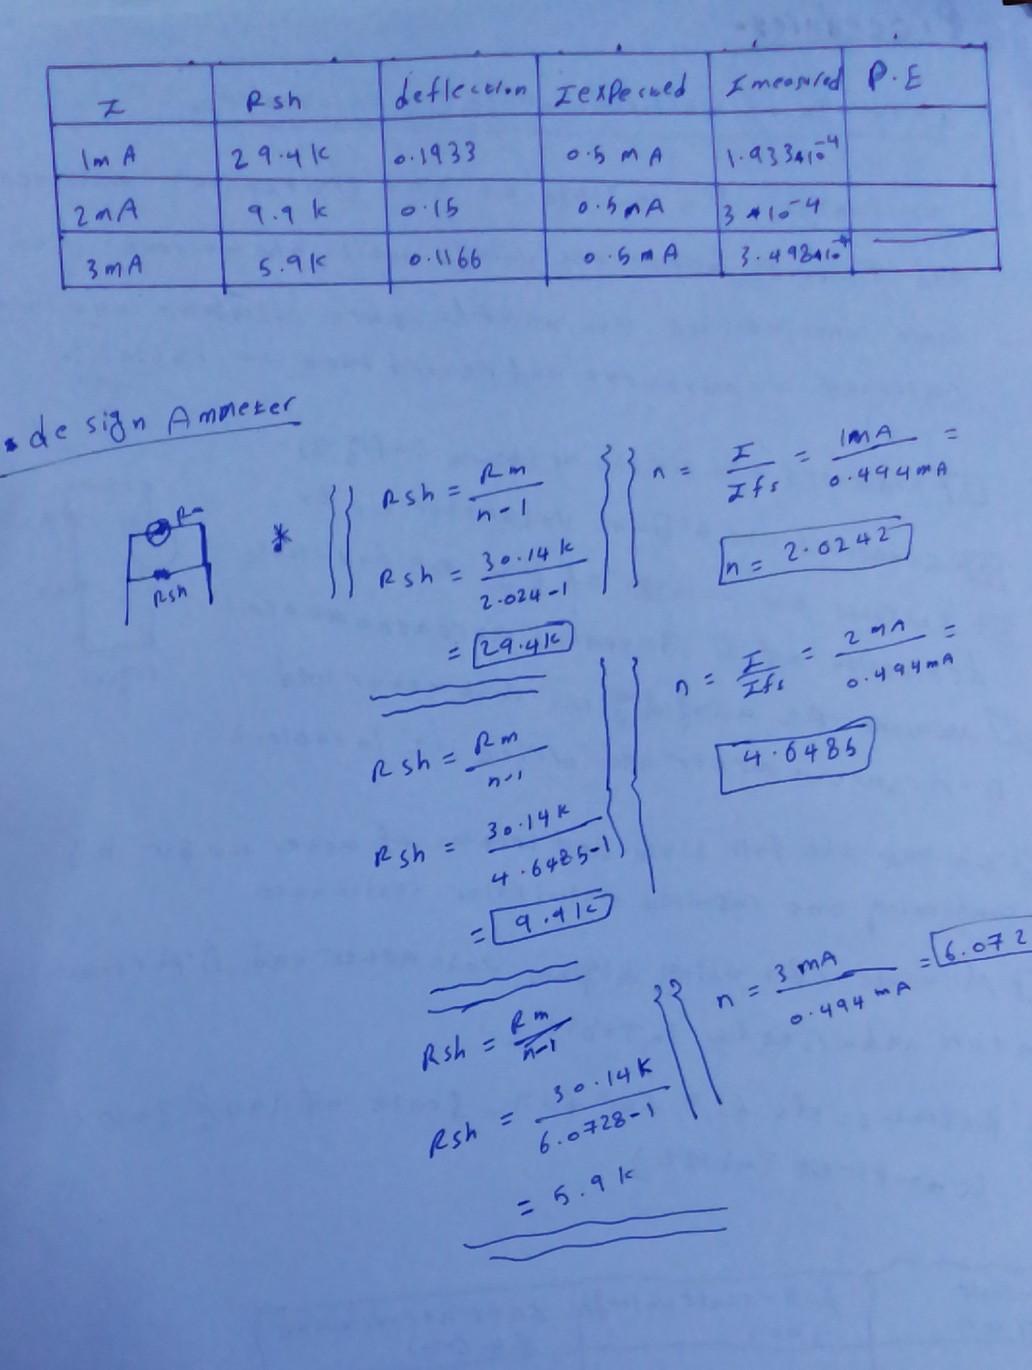 I Rsh deflection Iexpected Imeasured P.E
1mA 29.4k 0.1933 0.5 mA 1.933*10^-4
2mA 9.9k 0.15 0.5mA 3*10^-4
3mA 5.9k 0.1166 0.5mA 3.498*10^-4
design Ammeter
Rm
Rsh
*
Rsh = Rm / n-1
n = I / Ifs = 1mA / 0.494mA =
Rsh = 30.14k / 2.024-1
n = 2.0242
= 29.4k
n = I / Ifs = 2mA / 0.494mA =
Rsh = Rm / n-1
4.6485
Rsh = 30.14k / 4.6485-1
= 9.9k
n = 3mA / 0.494mA = 6.072
Rsh = Rm / n-1
Rsh = 30.14k / 6.0728-1
= 5.9k